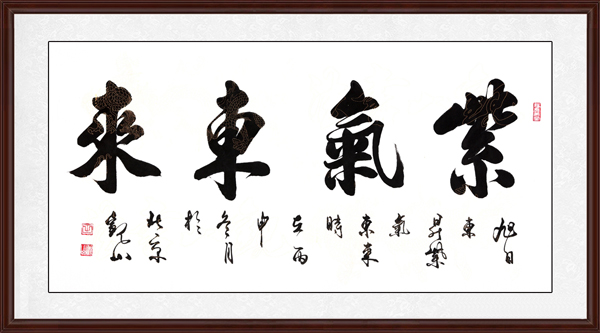 紫氣東來
旭日
東
昇紫
氣
東來
時
在丙
申
冬月
於
北京
山